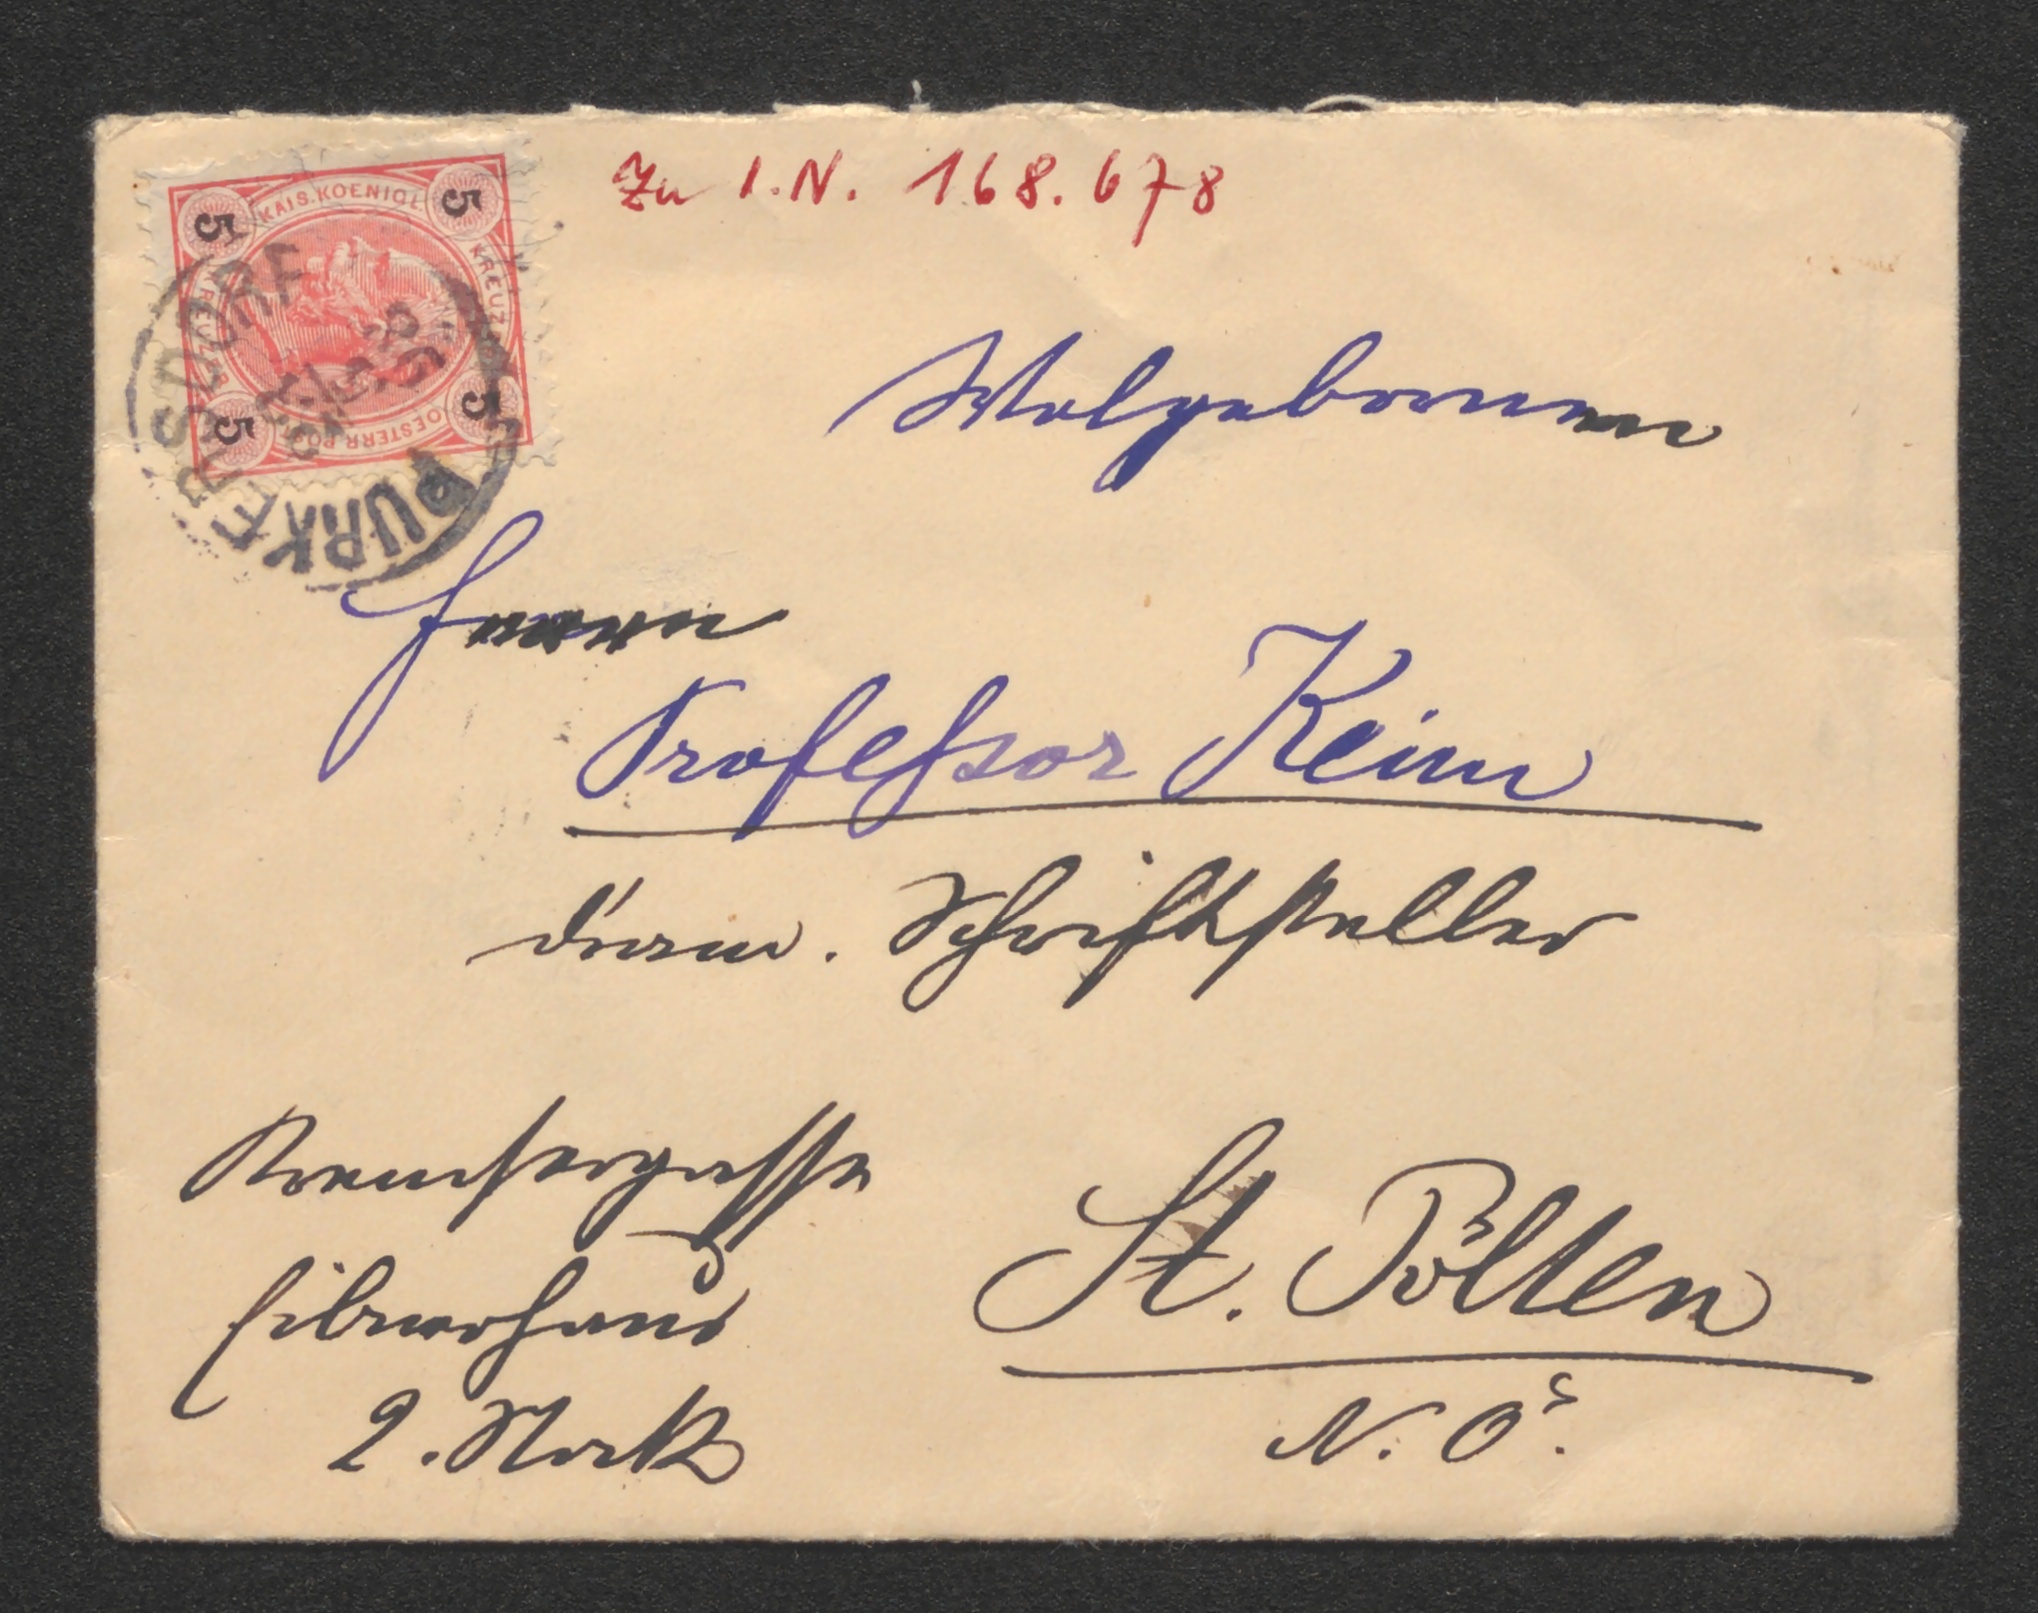 Zu I.N. 168.678
KAIS. KOENIGL.
5 5
KREUZER
KREUZER
5 5
OESTERR. POST
PURKERSDORF
Wolgeborenen
Herrn
Professor Keim
dram. Schriftsteller
Kremsergasse
St. Pölten
2. Stock
N. Ö.